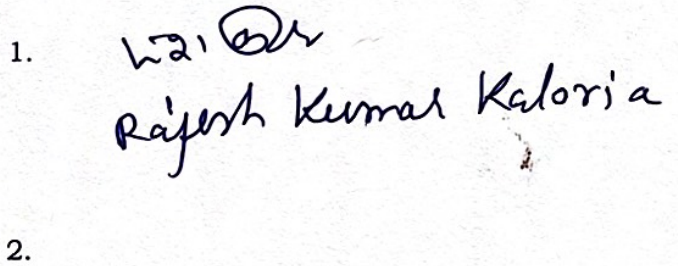 1.
Rajesh Kumar Kaloria
2.